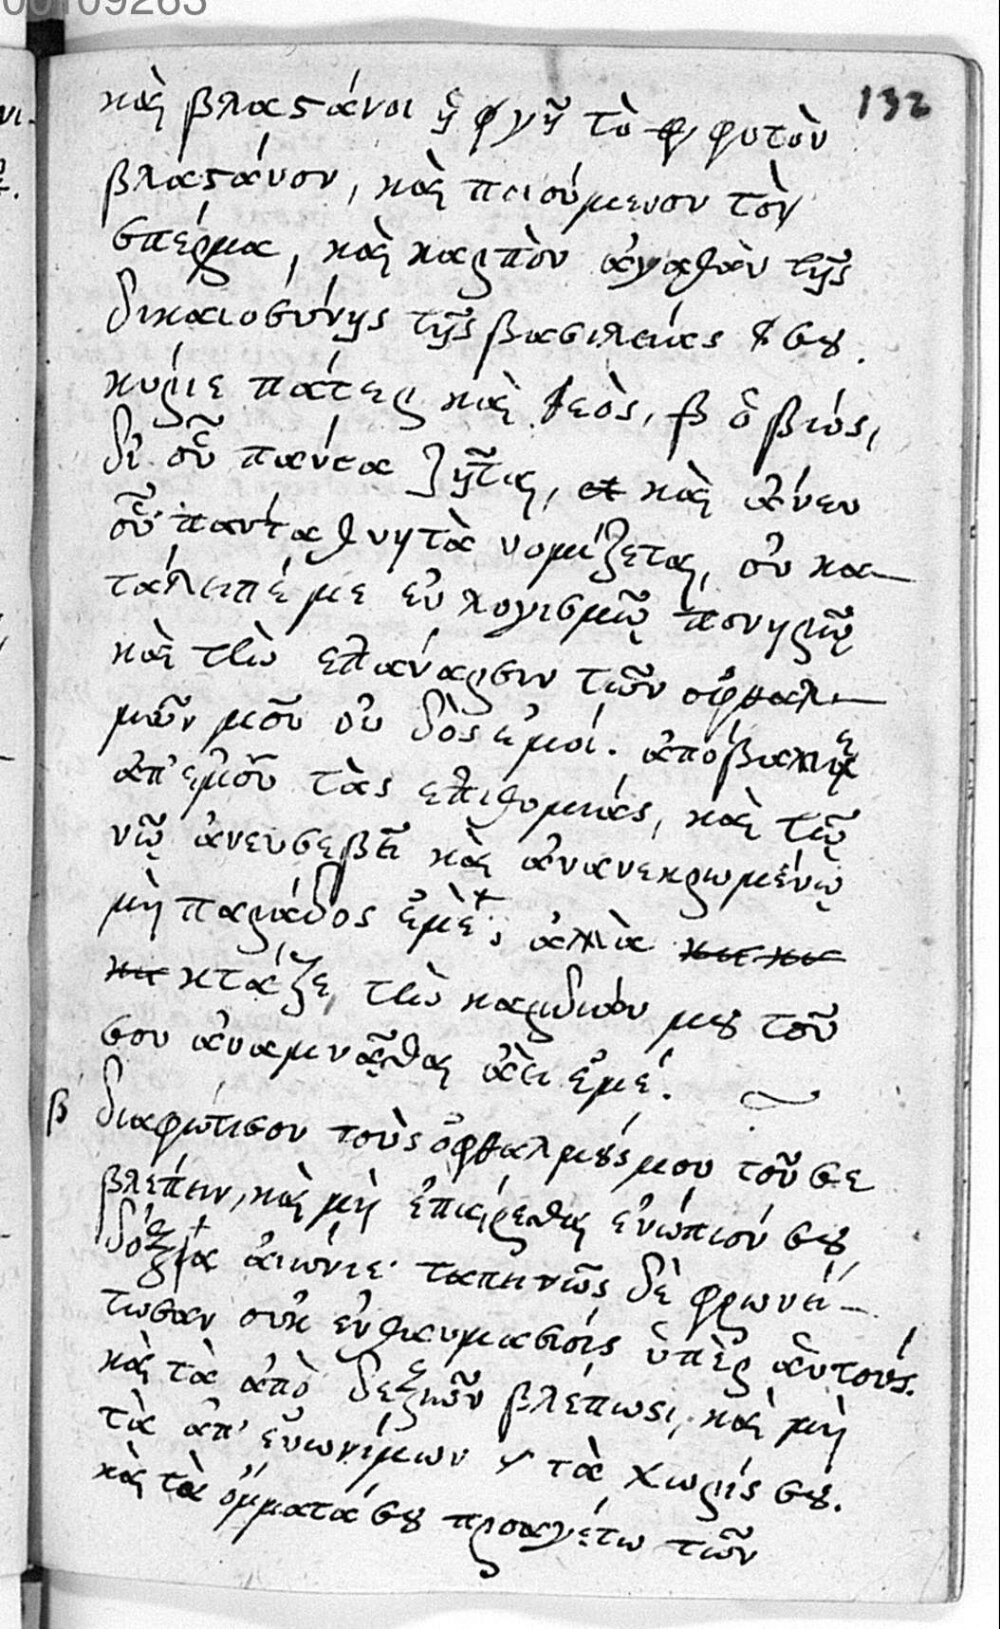 00109263
132
καὶ βλαστάνοι ἡ γῆ τὸ φυτὸν
βλαστάνον, καὶ ποιούμενον τὸν
σπέρμα, καὶ καρπὸν ἀγαθὸν τῆς
δικαιοσύνης τῆς βασιλείας σου.
κύριε πάτερ καὶ θεὸς, β ὁ βιός,
δι' οὗ πάντα ζῆται, καὶ ἄνευ
οὗ παντα θνητὰ νομίζεται, οὐ κα-
τάλειπέ με ἐν λογισμῷ πονηρῷ
καὶ τὴν ἐπάναρσιν τῶν οφθαλ-
μῶν μοῦ οὐ δὸς ἐμοί. ἀπόβαλλε
ἀπ' ἐμοῦ τὰς ἐπιθυμίας, καὶ τῷ
νῷ ἀνευσεβεῖ καὶ ἀνανεκρωμένῳ
μὴ παράδος ἐμὲ+; ἀλλὰ
κτάζε, τὴν καρδιάν μου τοῦ
σου ἀναμνᾶσθαι ἀεὶ ἐμέ.
β διαφώτισον τοὺς ὀφθαλμούς μου τοῦ σε
βλέπειν, καὶ μὴ ἐπαίρεσθαι ἐνώπιόν σου
αἰώνιε· ταπεινῶς δὲ φρωνεί-
τωσαν οὐκ ἐν θαυμασίοις ὑπὲρ ἀυτούς.
καὶ τὰ ἀπὸ δεξιῶν βλέπωσι, καὶ μὴ
τὰ ἀπ' εὐωνύμων τὰ χωρίς σου.
καὶ τὰ ὄμματά σου προαγέτω τῶν